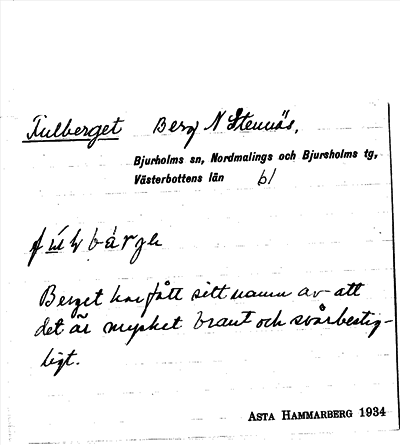 Fulberget Berg N Stennäs,
Bjurholms sn, Nordmalings och Bjursholms tg,
Västerbottens län bl
Berget har fått sitt namn av att
det är mycket brant och svårbestig-
ligt.
ASTA HAMMARBERG 1934